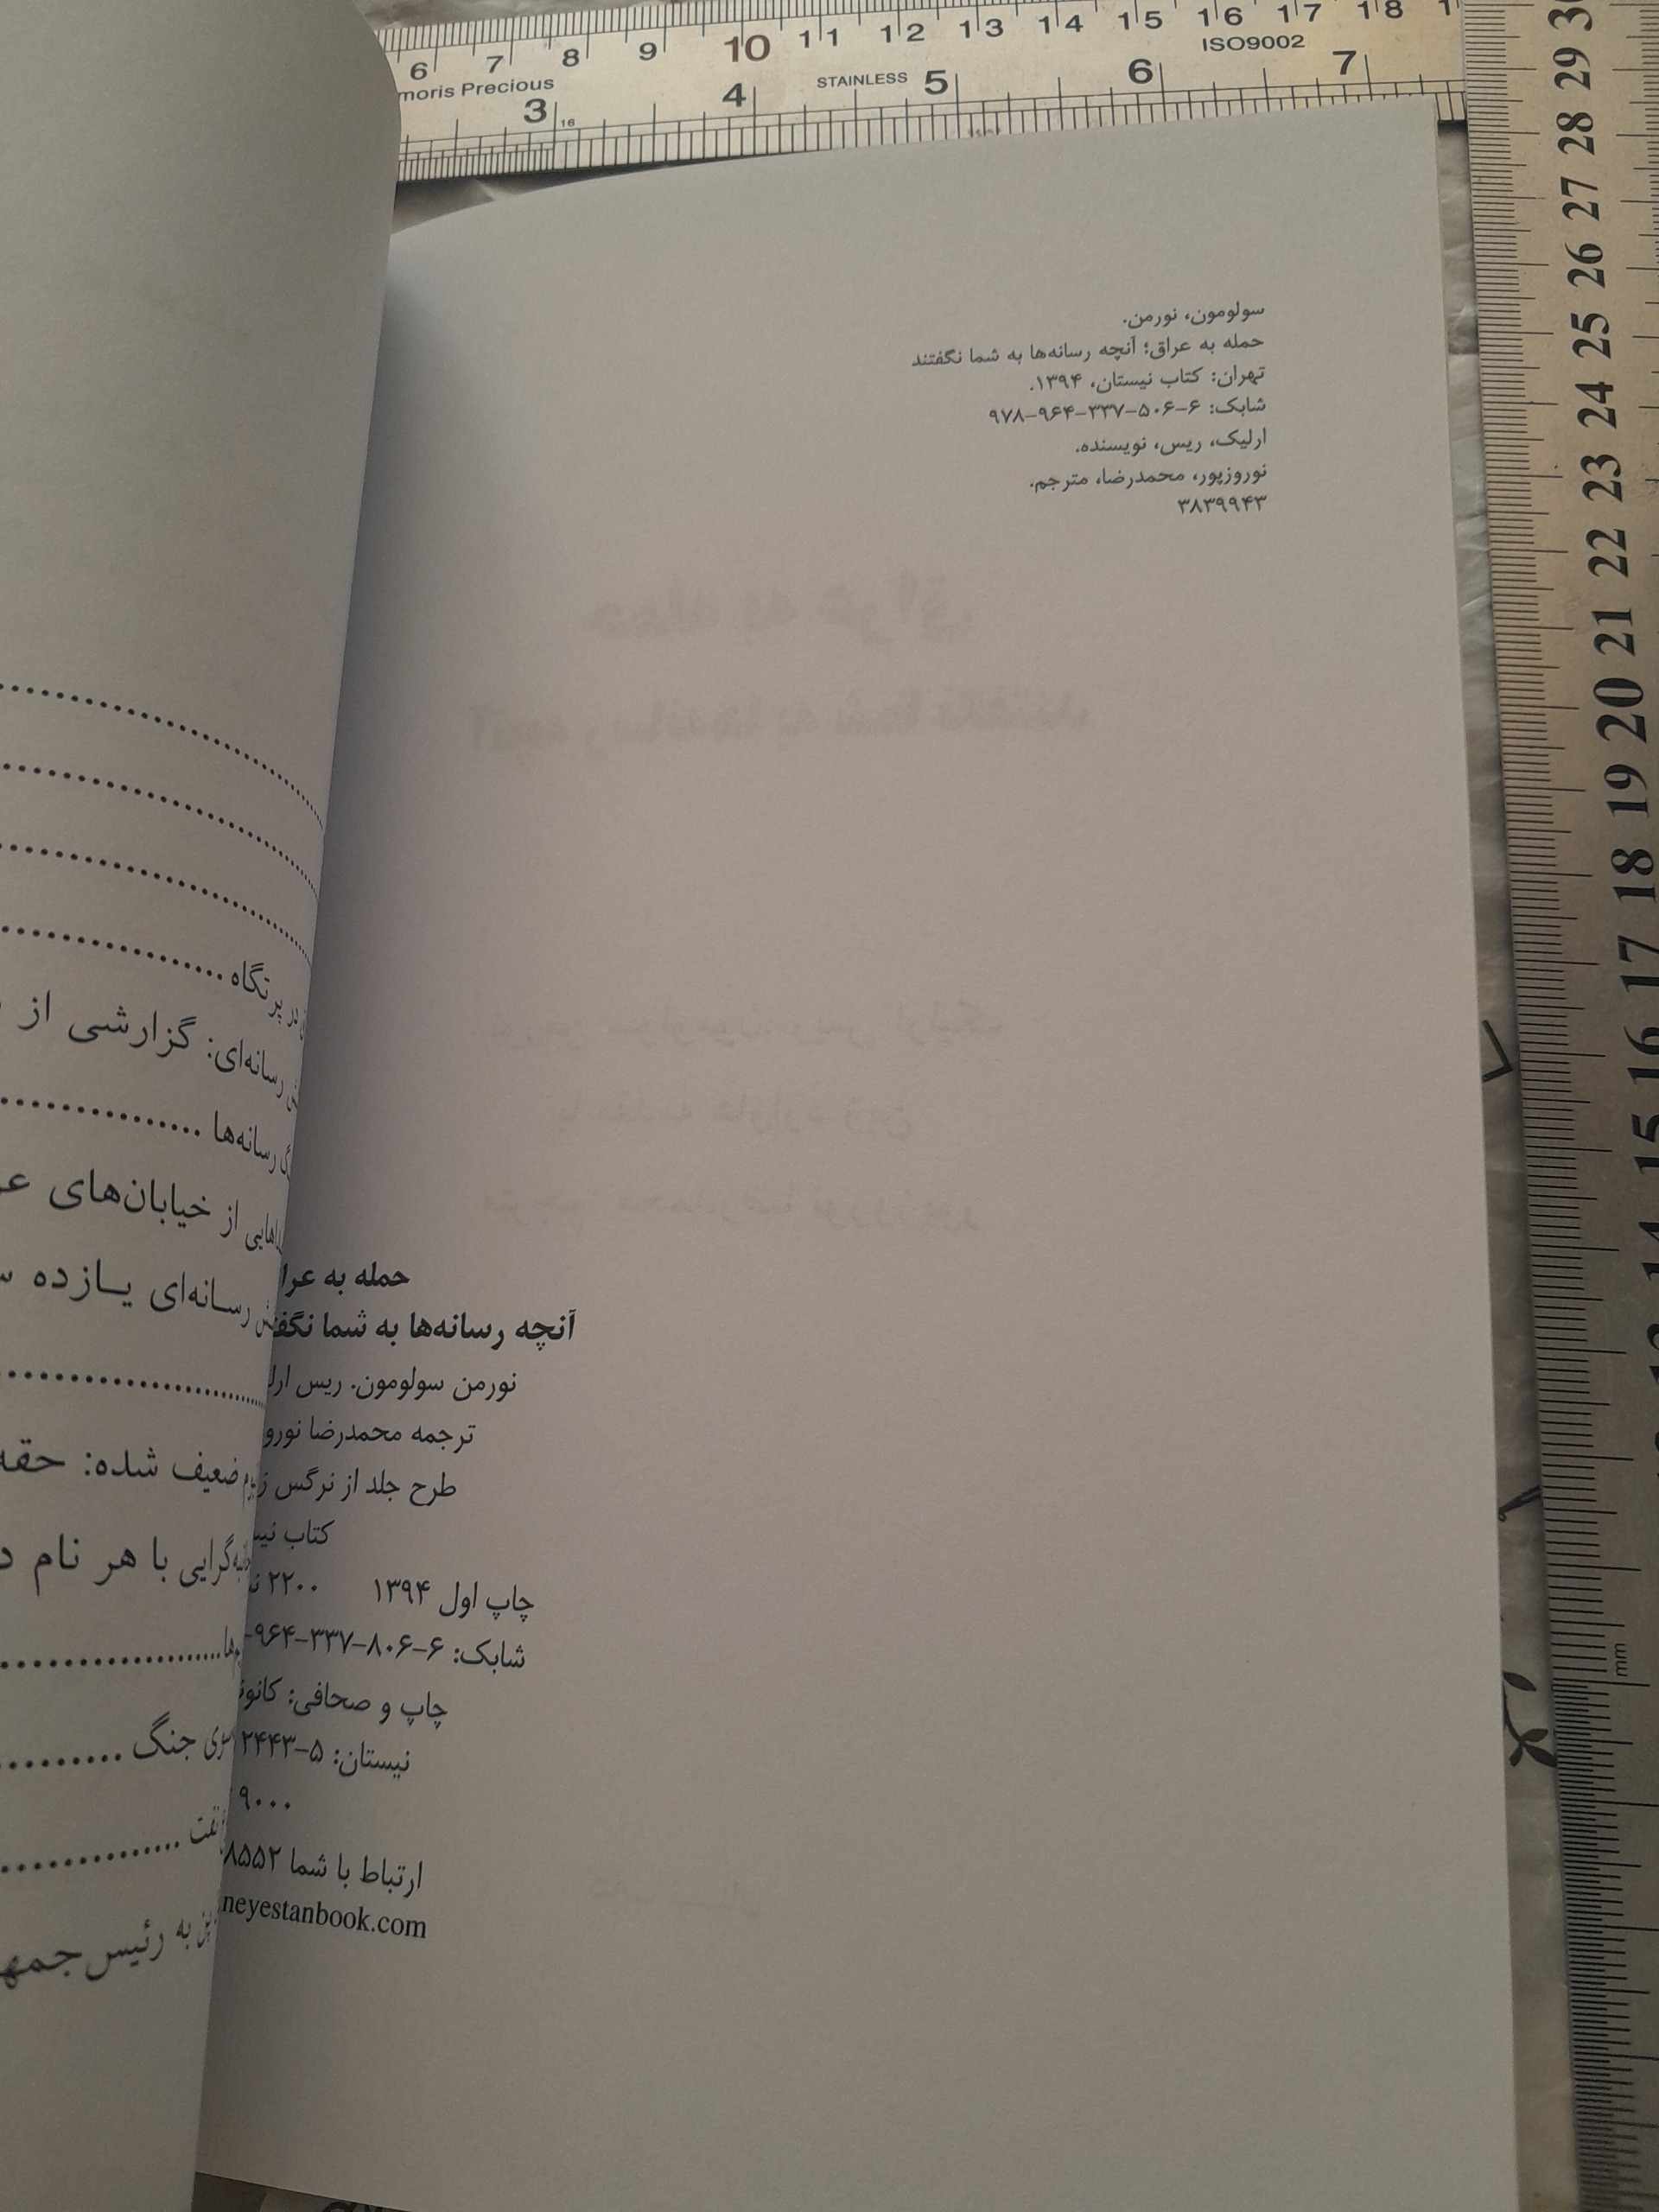 6 7 8 9 10 11 12 13 14 15 16 17 18
moris Precious
STAINLESS
ISO9002
3 4 5 6 7
16
سولومون، نورمن.
حمله به عراق؛ آنچه رسانه‌ها به شما نگفتند
تهران: کتاب نیستان، ۱۳۹۴.
شابک: ۶-۵۰۶-۳۳۷-۹۶۴-۹۷۸
ارلیک، ریس، نویسنده.
نوروزپور، محمدرضا، مترجم.
۳۸۳۹۹۴۳
حمله به عرا
آنچه رسانه‌ها به شما نگف
نورمن سولومون. ریس ارل
ترجمه محمدرضا نورو
طرح جلد از نرگس
کتاب نیس
چاپ اول ۱۳۹۴ ۲۲۰۰
شابک: ۶-۸۰۶-۳۳۷-۹۶۴-
چاپ و صحافی: کانون
نیستان: ۵-۲۴۴۳
۹۰۰۰
ارتباط با شما ۸۵۵۲
neyestanbook.com
در پرتگاه
رسانه‌ای: گزارشی از
رسانه‌ها
هایی از خیابان‌های عر
رسانه‌ای یازده س
ضعیف شده: حقه
گرایی با هر نام د
ها
جنگ
نفت
به رئیس‌جمه
30
29
28
27
26
25
24
23
22
21
20
19
18
17
16
15
14
13
mm